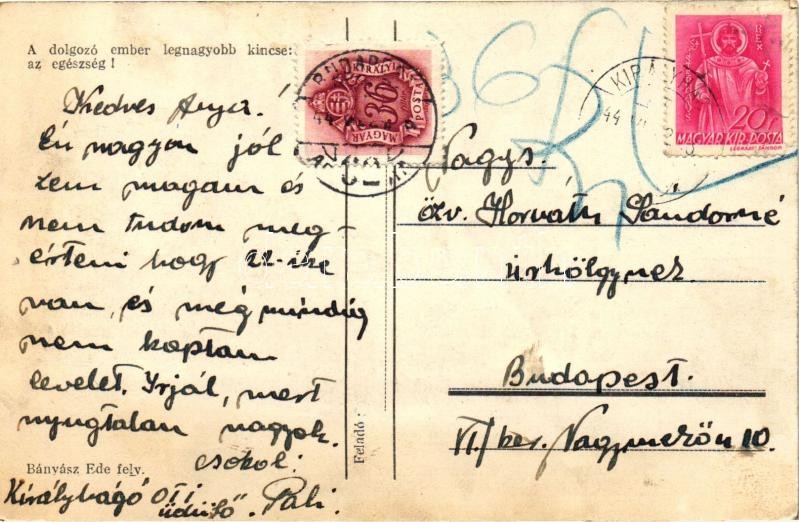 A dolgozó ember legnagyobb kincse:
az egészség !
Kedves Anya.
Én nagyon jól
érzem magam és
nem tudom meg-
érteni hogy 22-ike
van, és még mindig
nem kaptam
levelet. Irjál, mert
nyugtalan vagyok.
csokol:
Pali.
Királyhágó OTI
üdülő
Bányász Ede felv.
Feladó :
36 f
KIRÁLYI
MAGYAR
POSTA
36
BUDAP
REX
20f
MAGYAR KIR. POSTA
LÉGRÁDY SÁNDOR
KIRÁLYHÁGÓ
44
Nagys.
özv. Horváth Sándorné
úrhölgynek.
Budapest.
VI/ker. Nagymező u 10.